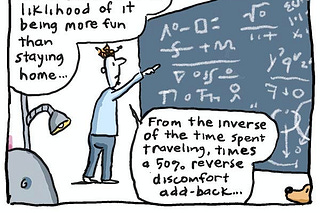 liklihood of it
being more fun
than
staying
home...
From the inverse
of the time spent
traveling, times
a 50% reverse
discomfort
add-back...